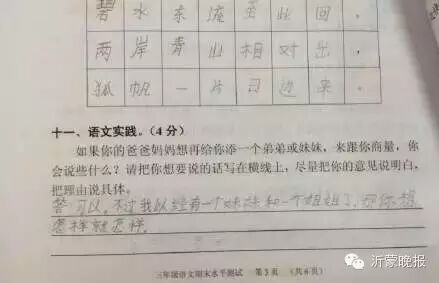 碧水东流至此回，
两岸青山相对出，
孤帆一片日边来。
十一、语文实践。（4分）
如果你的爸爸妈妈想再给你添一个弟弟或妹妹，来跟你商量，你
会说些什么？请把你想要说的话写在横线上，尽量把你的意见说明白，
把理由说具体。
答：可以，不过我以经有一个妹妹和一个姐姐了，那你想
怎样就怎样。
三年级语文期末水平测试 第3页 （共6页）
沂蒙晚报